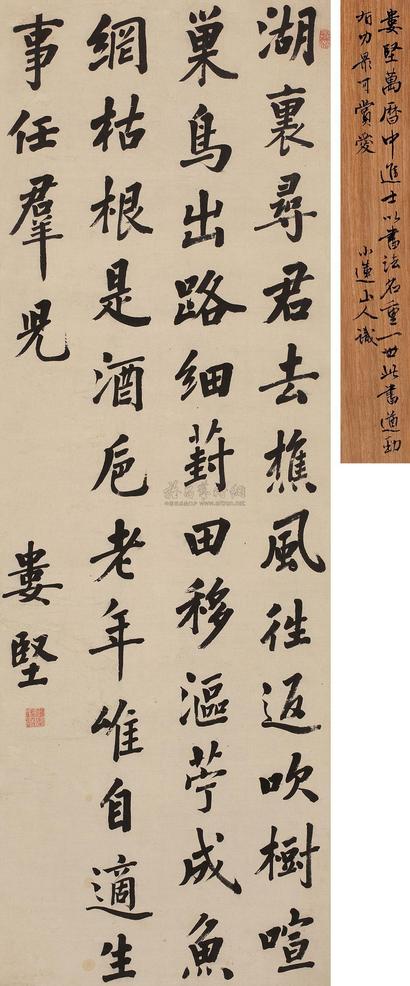 湖裏尋君去樵風往返吹樹喧
巢鳥出路細葑田移漚苧成魚
網枯根是酒卮老年惟自適生
事任羣兒
婁堅
婁堅萬曆中進士以書法名重一世此書遒勁
有力最可賞愛
小蓮山人識